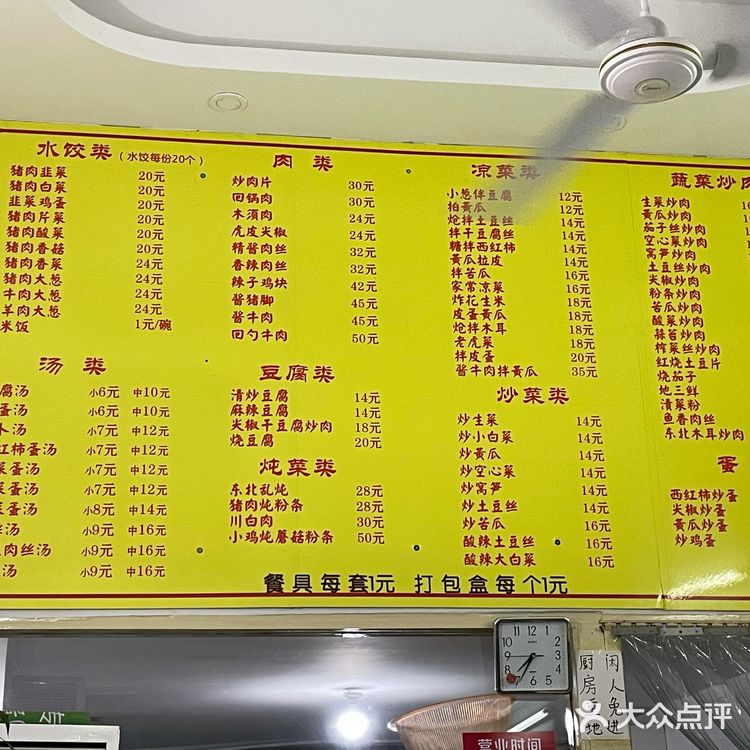 水饺类（水饺每份20个）
猪肉韭菜 20元
猪肉白菜 20元
韭菜鸡蛋 20元
猪肉芹菜 20元
猪肉酸菜 20元
猪肉香菇 20元
猪肉香菜 24元
猪肉大葱 24元
牛肉大葱 24元
羊肉大葱 24元
米饭 1元/碗
汤类
腐汤 小6元 中10元
蛋汤 小6元 中10元
汤 小7元 中12元
红柿蛋汤 小7元 中12元
菜蛋汤 小7元 中12元
蛋汤 小8元 中14元
汤 小9元 中16元
肉丝汤 小9元 中16元
汤 小9元 中16元
肉类
炒肉片 30元
回锅肉 30元
木须肉 24元
虎皮尖椒 24元
精酱肉丝 32元
香辣肉丝 32元
辣子鸡块 42元
酱猪脚 45元
酱牛肉 45元
回勺牛肉 50元
豆腐类
清炒豆腐 14元
麻辣豆腐 14元
尖椒干豆腐炒肉 18元
烧豆腐 20元
炖菜类
东北乱炖 28元
猪肉炖粉条 28元
川白肉 30元
小鸡炖蘑菇粉条 50元
凉菜类
小葱伴豆腐 12元
拍黄瓜 12元
炝拌土豆丝 14元
拌干豆腐丝 14元
糖拌西红柿 14元
黄瓜拉皮 14元
拌苦瓜 16元
家常凉菜 16元
炸花生米 18元
皮蛋黄瓜 18元
炝拌木耳 18元
老虎菜 18元
拌皮蛋 20元
酱牛肉拌黄瓜 35元
炒菜类
炒生菜 14元
炒小白菜 14元
炒黄瓜 14元
炒空心菜 14元
炒窝笋 14元
炒土豆丝 14元
炒苦瓜 16元
酸辣土豆丝 16元
酸辣大白菜 16元
蔬菜炒肉
生菜炒肉
黄瓜炒肉
茄子丝炒肉
空心菜炒肉
窝笋炒肉
土豆丝炒肉
尖椒炒肉
粉条炒肉
苦瓜炒肉
酸菜炒肉
蒜苔炒肉
榨菜丝炒肉
红烧土豆片
烧茄子
地三鲜
渍菜粉
鱼香肉丝
东北木耳炒肉
蛋
西红柿炒蛋
尖椒炒蛋
黄瓜炒蛋
炒鸡蛋
餐具每套1元 打包盒每个1元
厨房重地
闲人免进
营业时间
大众点评